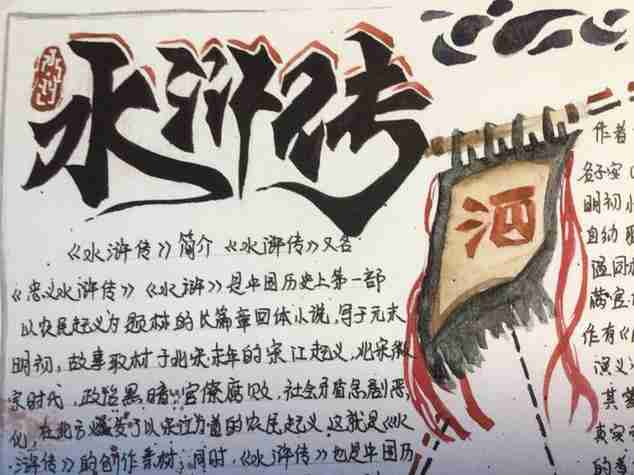 水浒
水浒传
《水浒传》简介 《水浒传》又名
《忠义水浒传》《水浒》是中国历史上第一部
以农民起义为题材的长篇章回体小说，写于元末
明初，故事取材于北宋末年的宋江起义，北宋徽
宗时代，政治黑暗，官僚腐败，社会矛盾急剧恶
化，在北方爆发了以宋江为首的农民起义，这就是《水
浒传》的创作素材，同时，《水浒传》也是中国历
酒
作者
名子安
明初
自幼
满
作有《
演义
其
真实
的